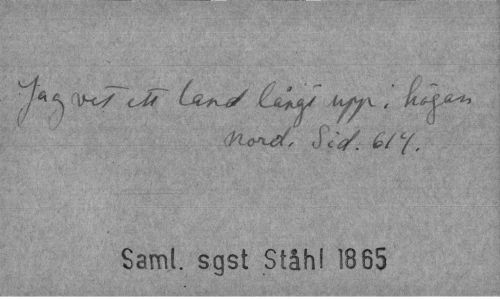 Jag vet ett land långt upp i högan
Nord. Sid. 614.
Saml. sgst Ståhl 1865